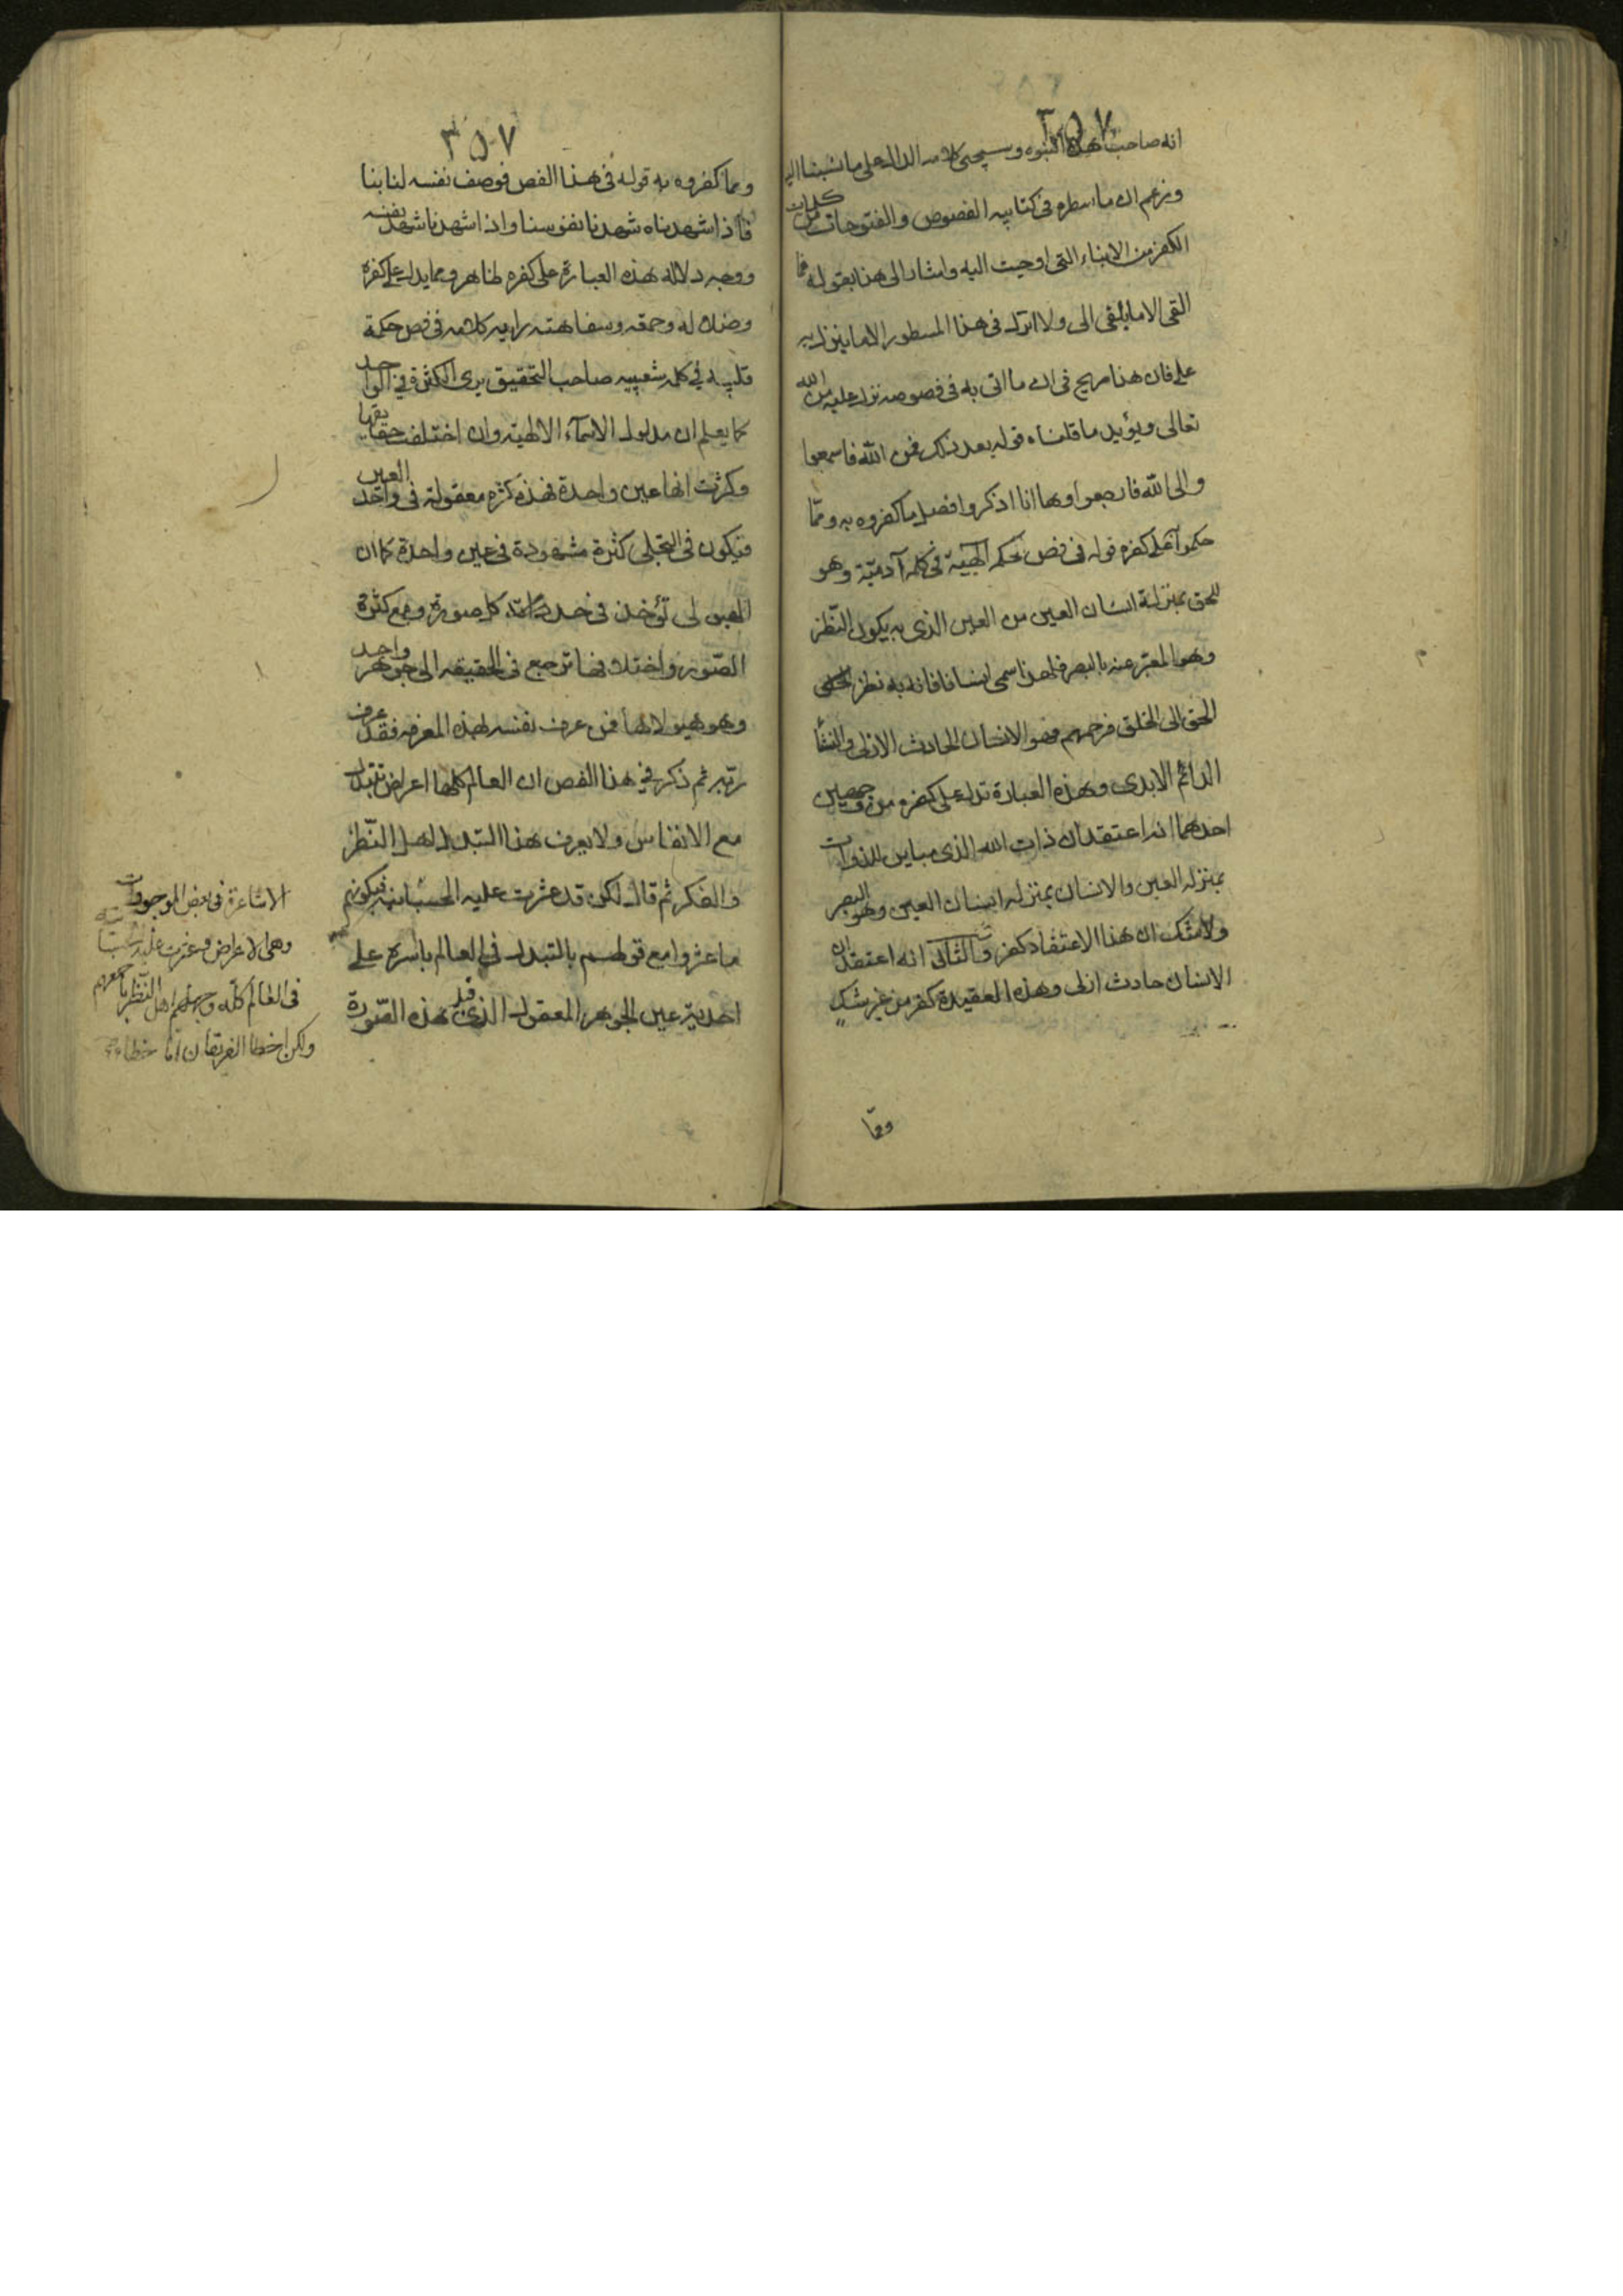 ٣٥٧
انه صاحب هذه النبوه وسيجئ كلامه الدال على ما نسبنا اليه
وزعم ان ما سطره فى كتابيه الفصوص والفتوحات من كلمات
الكفر من الانباء التى اوحيت اليه واشار الى هذا بقوله فما
القى الا ما يلقى الى ولا انزل فى هذا المسطور الا ما ينزل به
على فان هذا صريح فى ان ما اتى به فى فصوصه نزل عليه من الله
تعالى ويؤيد ما قلناه قوله بعد ذلك فمن الله فاسمعوا
والى الله فارجعوا وها انا اذكر وافصل ما كفروه به وممّا
حكموا على كفره قوله فى فص حكمه الهيّة فى كلمه آدميّة وهو
للحق بمنزلة انسان العين من العين الذى به يكون النّظر
وهو المعبّر عنه بالبصر فلهذا سمى انسانا فانه به نظر
الحق الى الخلق فرحمهم فهو الانسان الحادث الازلى والنشأ
الدائم الابدى وهذه العبارة تدل على كفره من وجهين
احدهما انه اعتقد ان ذات الله الذى مباين للذوات
بمنزله العين والانسان بمنزله انسان العين وهو البصر
ولا شك ان هذا الاعتقاد كفر والثانى انه اعتقد ان
الانسان حادث ازلى وهذه العقيدة كفر من غير شك
وممّا
٣٥٧
ومما كفروه به قوله فى هذا الفص فوصف نفسه لنا بنا
فاذا شهدناه شهدنا نفوسنا واذا شهدنا شهد نفسه
ووجه دلاله هذه العبارة على كفره ظاهر ومما يدل على كفره
وضلاله وحمقه وسفاهته رايه كلامه فى فص حكمة
قلبيه فى كلمه شعيبيه صاحب التحقيق يرى الكثرة فى الواحد
كما يعلم ان مدلول الاسمآء الالهيّه وان اختلفت حقايقها
وكثرت انها عين واحدة فهذه كثره معقولة فى واحد العين
فيكون فى التجلى كثرة مشهودة فى عين واحدة كما ان
الهيولى تؤخذ فى حد كل صورة ومع كثرة
الصّور واختلافها ترجع فى الحقيقه الى جوهر واحد
وهو هيولاها فمن عرف نفسه بهذه المعرفه فقد عرف
ربّه ثم ذكر فى هذا الفص ان العالم كلها اعراض تتبدل
مع الانفاس ولا يعرف هذا التبدل اهل النّظر
والفكر ثم قال لكن قد عثرت عليه الحسبانيه فيكونهم
ما عثروا مع قولهم بالتبدل فى العالم باسره على
احديّة عين الجوهر المعقول الذى قبل هذه الصّورة
الاشاعرة فى بعض الموجودات
وهى الاعراض وعثرت عليه
فى العالم كلّه وجهلهم اهل النّظر باجمعهم
ولكن اخطا الفريقان امّا خطاء